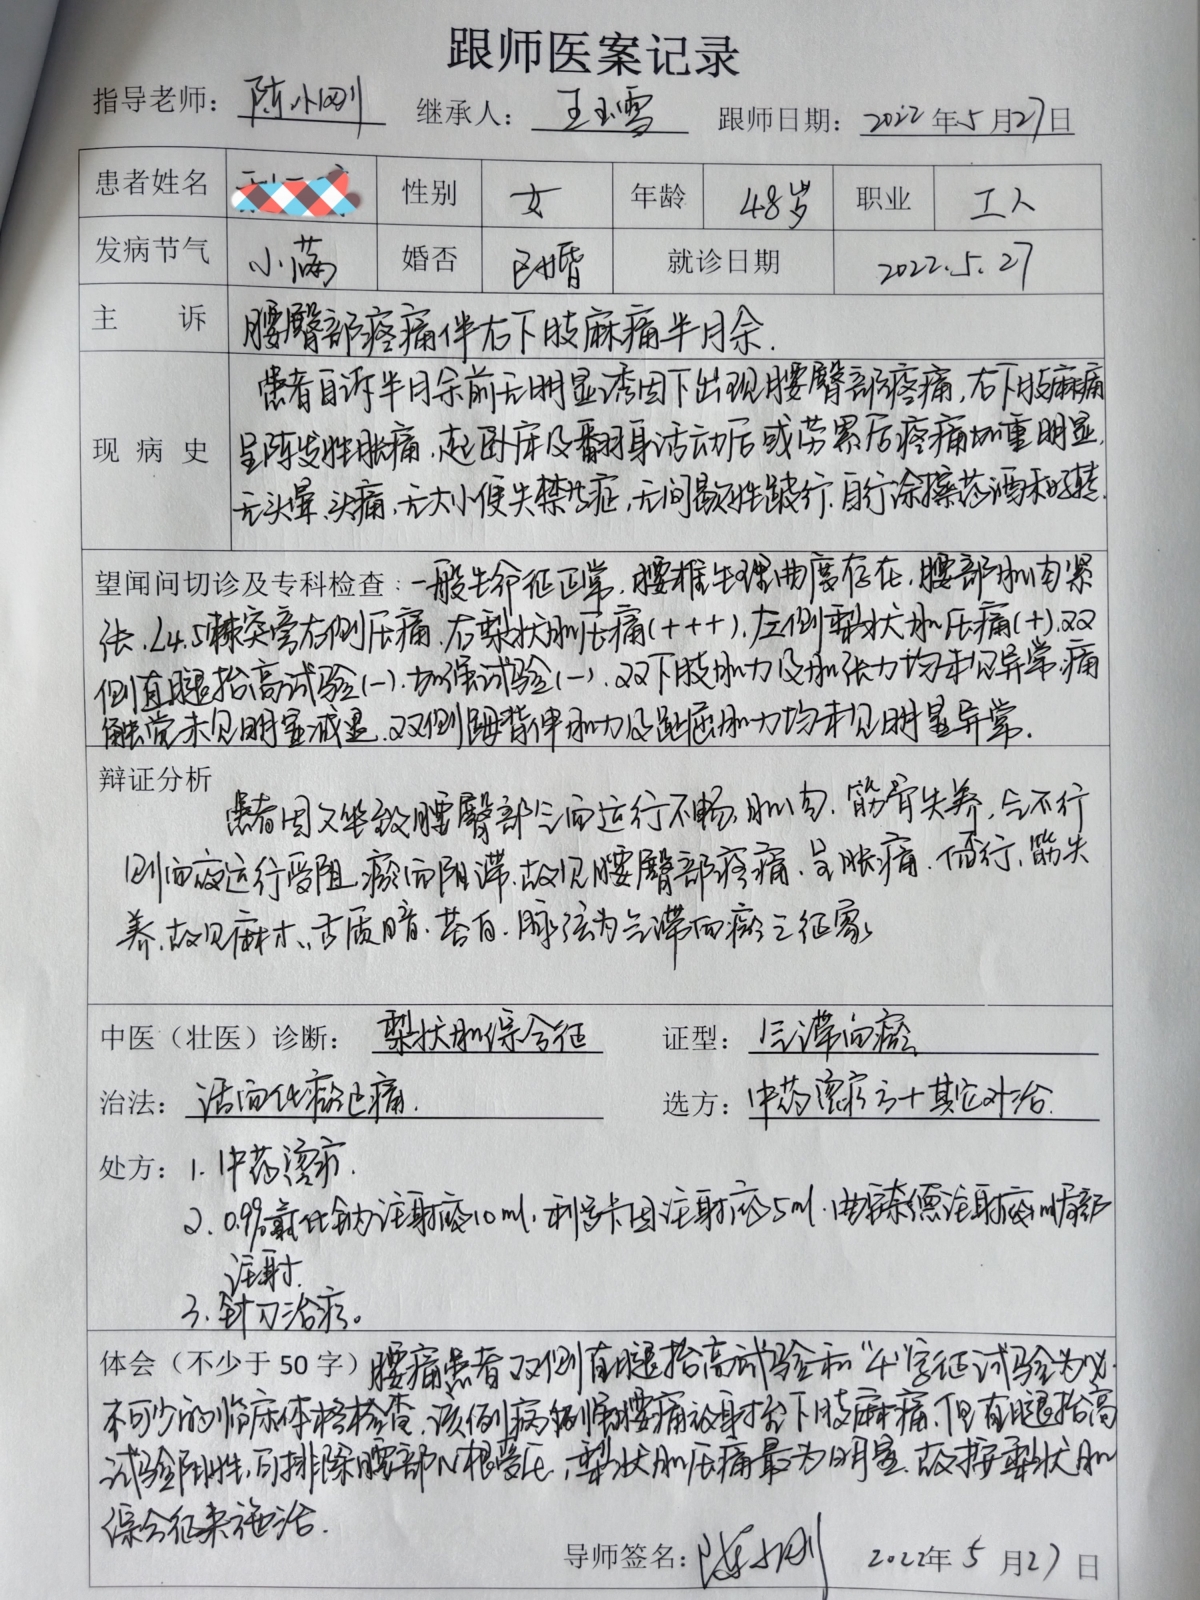 跟师医案记录
指导老师：陈小刚 继承人：王玉雪 跟师日期：2022年5月27日
患者姓名 性别 女 年龄 48岁 职业 工人
发病节气 小满 婚否 已婚 就诊日期 2022.5.27
主诉 腰臀部疼痛伴右下肢麻痛半月余.
患者自诉半月余前无明显诱因下出现腰臀部疼痛,右下肢麻痛
现病史 呈阵发性胀痛,起卧床及翻身活动后或劳累后疼痛加重明显,
无头晕、头痛,无大小便失禁等症,无间歇性跛行.自行涂擦药酒未好转.
望闻问切诊及专科检查：一般生命征正常,腰椎生理曲度存在,腰部肌肉紧
张.L4.5棘突旁右侧压痛.右梨状肌压痛(+++),左侧梨状肌压痛(+).双
侧直腿抬高试验(一).加强试验(一).双下肢肌力及肌张力均未见异常.痛
触觉未见明显减退.双侧踇背伸肌力及趾屈肌力均未见明显异常.
辩证分析
患者因致腰臀部气血运行不畅,肌肉、筋骨失养,气不行
则血液运行受阻,瘀血阻滞,故见腰臀部疼痛.呈胀痛.行,筋失
养,故见麻木.舌质暗.苔白.脉弦为气滞血瘀之征象
中医（壮医）诊断：梨状肌综合征 证型：气滞血瘀
治法：活血化瘀止痛. 选方：中药烫疗方+其它对治.
处方：1.中药烫疗.
2.0.9%氯化钠注射液10ml,利多卡因注射液5ml.曲安奈德注射液1ml局部
注射.
3.针刀治疗。
体会（不少于50字）腰痛患者双侧直腿抬高试验和“4”字征试验为必
不可少的临床体格检查.该例病例腰痛放射至下肢麻痛.但直腿抬高
试验阴性,可排除腰部N根受压,梨状肌压痛最为明显.故按梨状肌
综合征来施治.
导师签名：陈小刚 2022年5月27日